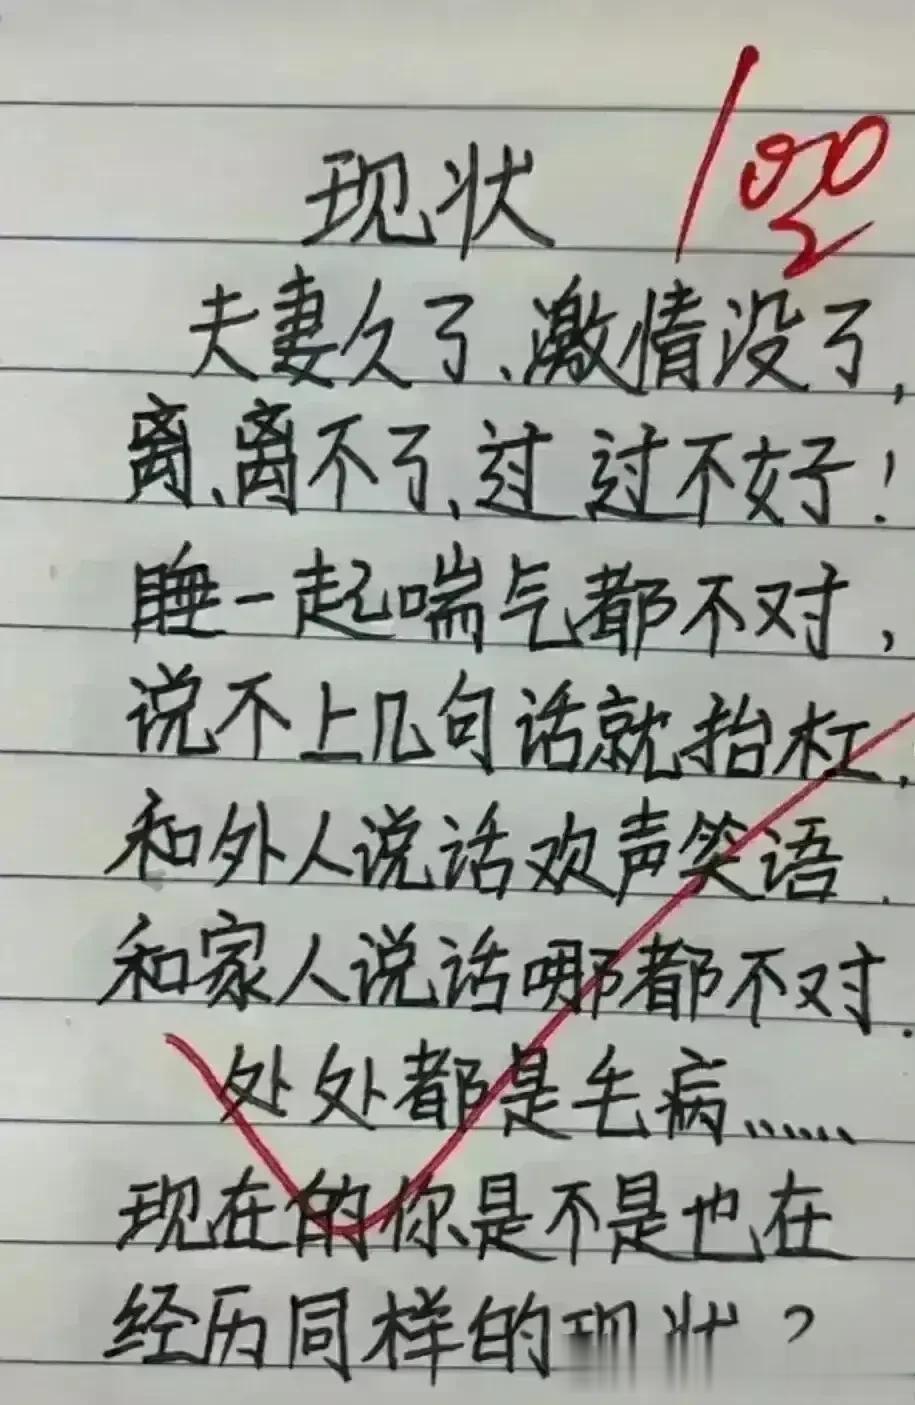 现状
100
夫妻久了、激情没了,
离、离不了、过 过不好!
睡一起喘气都不对,
说不上几句话就抬杠,
和外人说话欢声笑语.
和家人说话哪都不对.
处处都是毛病......
现在的你是不是也在
经历同样的现状?